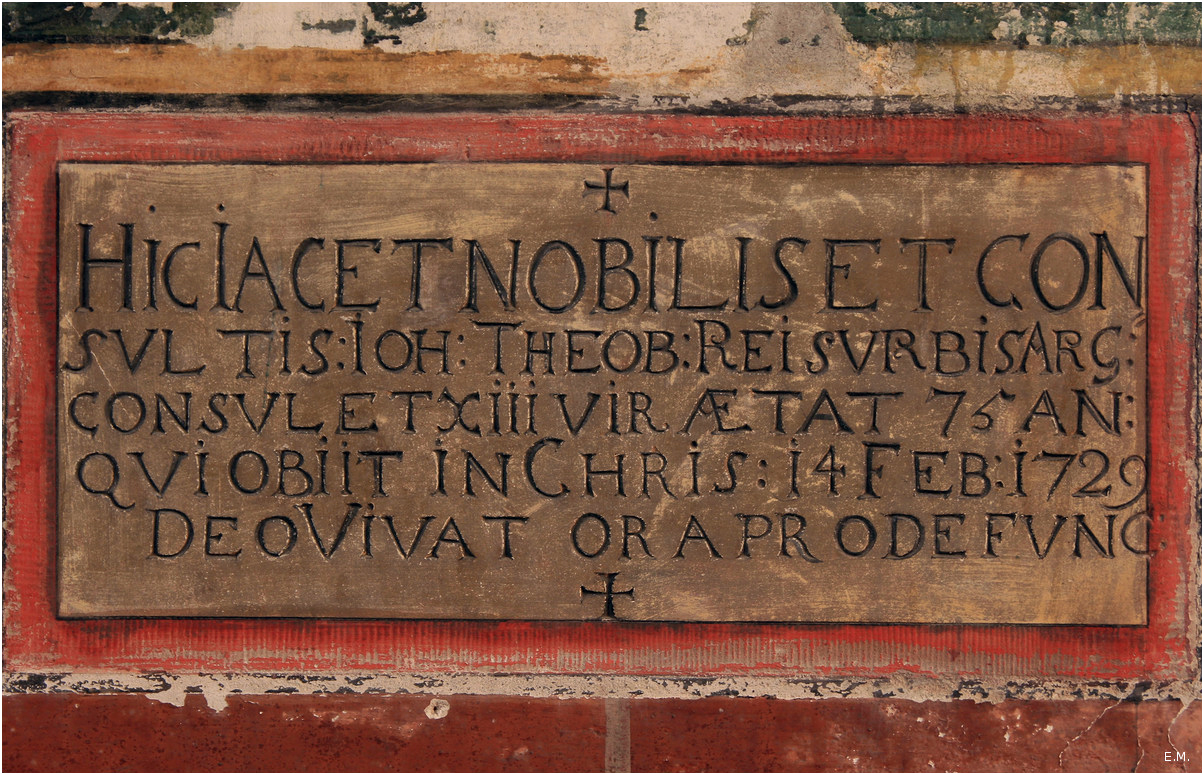 HiC IACET NOBiLIS ET CON
SVLTIS: IOH: THEOB: REiS VRBiS ARG:
CONSVL ET Xiii ViR ÆTAT 75 AN:
QVi OBiiT iN CHRiS: i4 FEB: i729
DEO ViVAT ORA PRO DEFVNC
E.M.